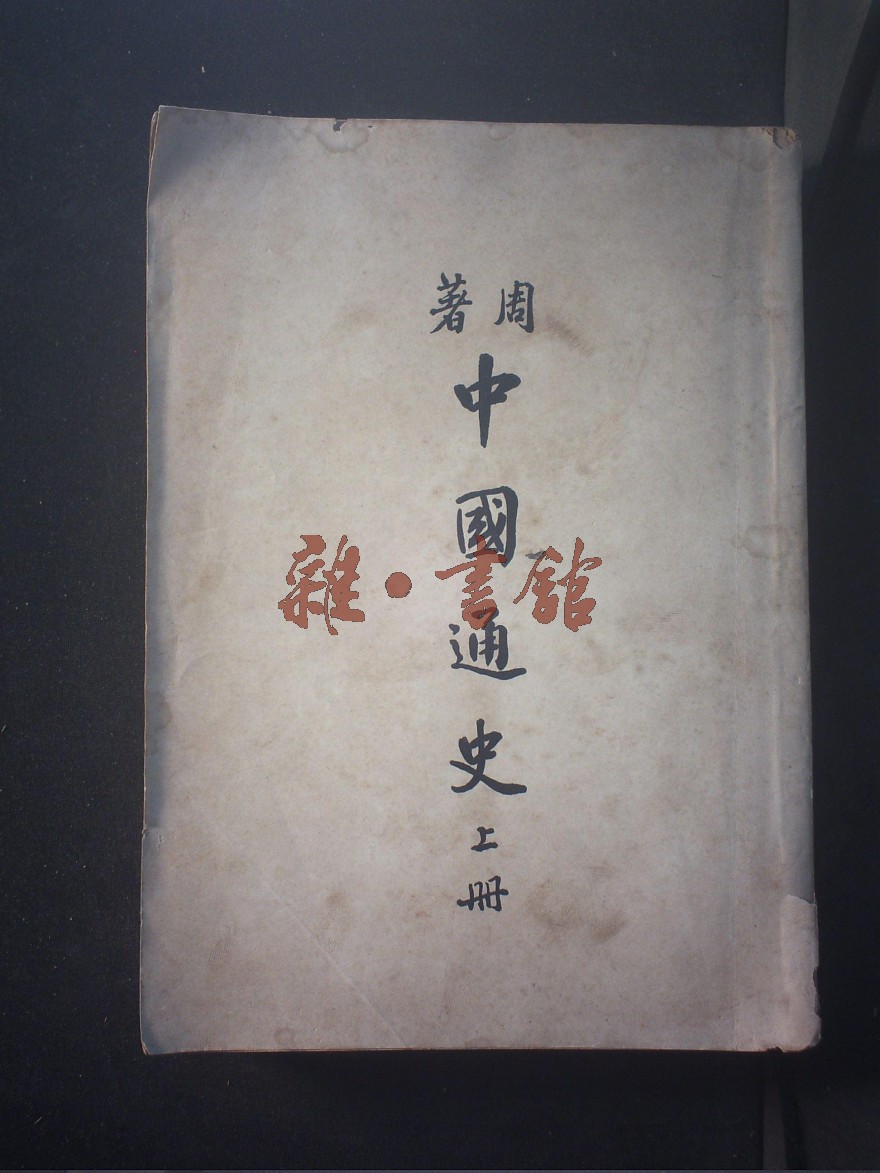 周著
中國通史
上册
雜·書舘